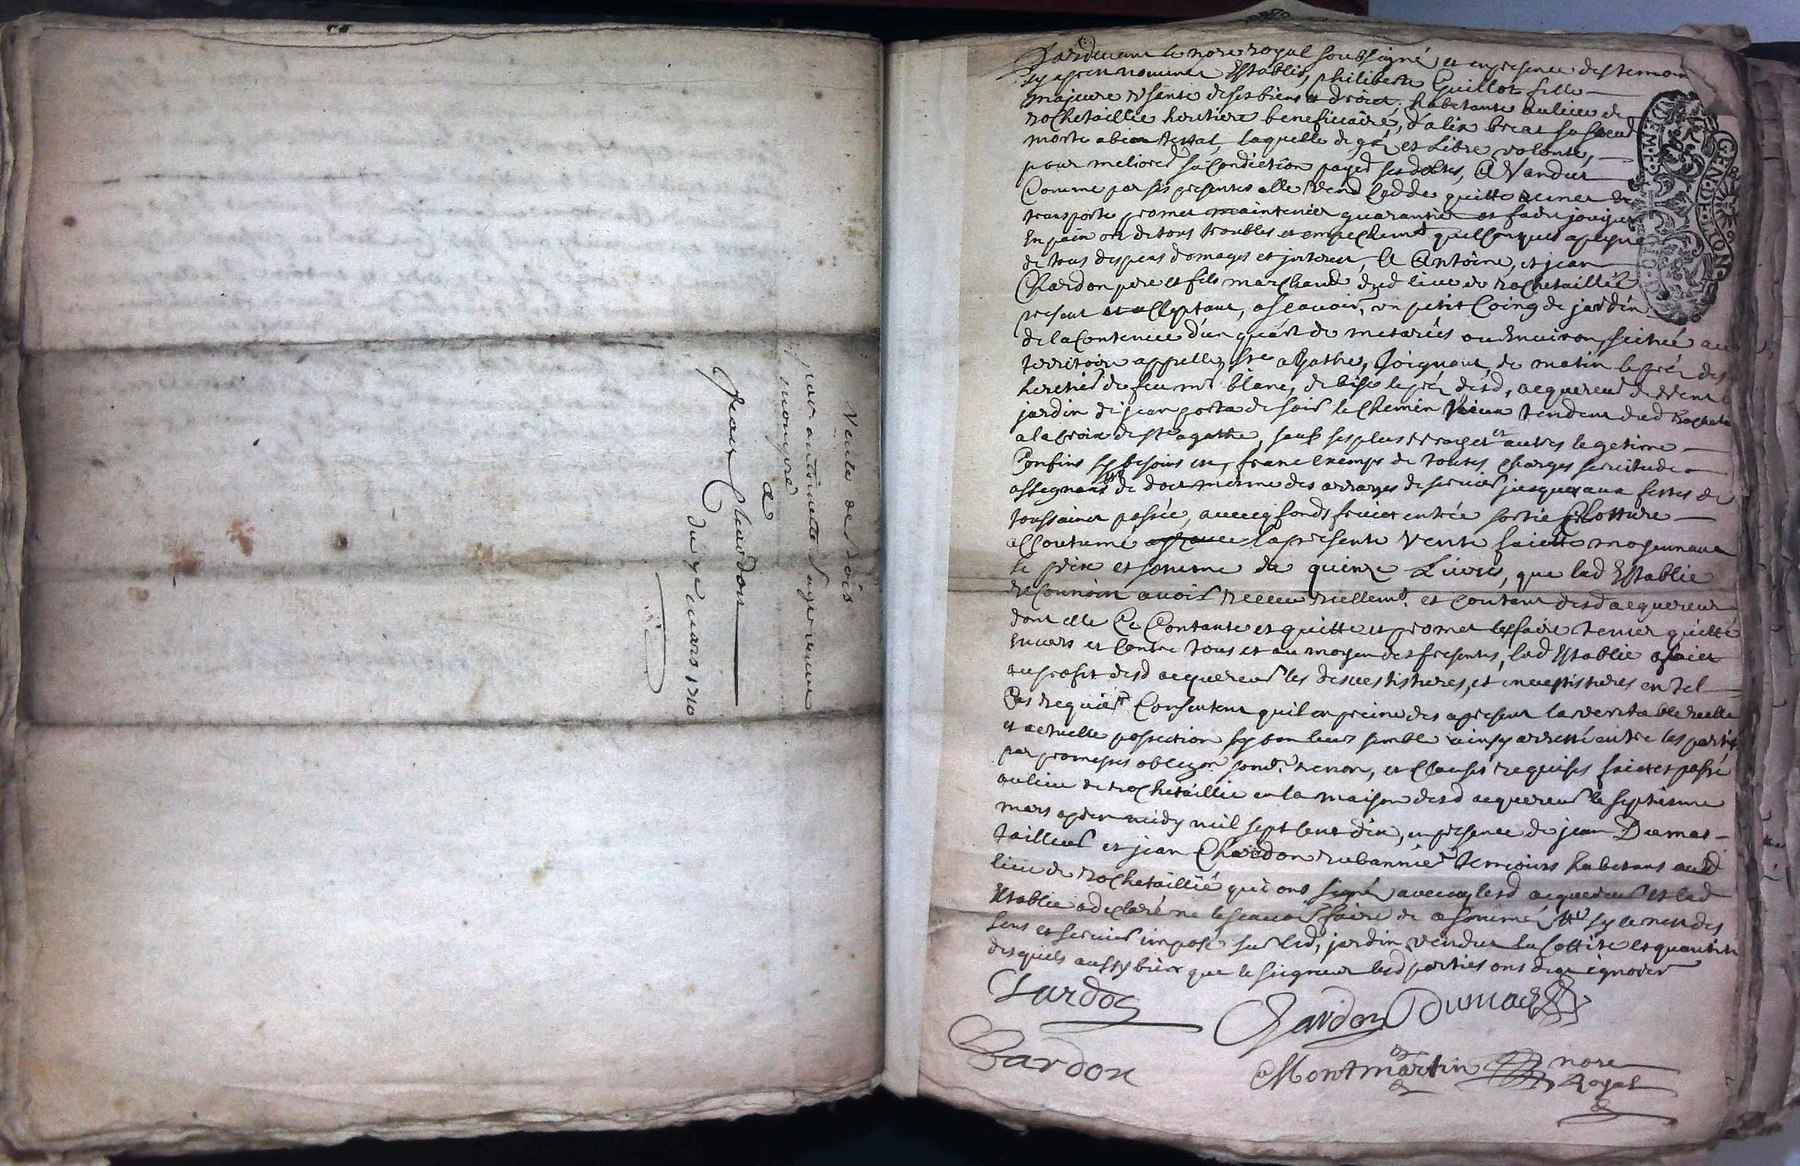 Vente de bois
par antoinette
a
Jean Chardon
du 9e mars 1710
GEN. DE LION
Pardevant le nore royal soussigné et en presence des temoins
cy apres nommes Establie, philiberte Guillot fille
majeure usante de ses biens et droict, habitante au lieu de
rochetaillie heritiere beneficiaire, d'alix breat sa
morte abintestat, laquelle de gé et libre volonte,
pour meliorer sa condiction payer ses debtes, A Vandu
Comme par ses presentes elle vend cedde quitte remet et
transporte promet maintenier guarantier et faire jouyr
En paix et de tous troubles et empechemt quelconques a peyne
de tous despens domages et jnterest, A Antoine, et jean
Chardon pere et fils marchand dud lieu de rochetaillie
present et acceptant, ascavoir, un petit Coing de jardin
de la Contenue d'un quart de metarée ou Environ, scitué au
territoire appellez ste agathe, Joignant de matin le prez des
heretier de feu mr blanc, de bise le prez desd, acquereur de vent le
jardin de jean porta de soir le chemin tendent dud
a la croix de ste agathe, sauf ses plus vrays et autres legetime
Confins sy besoins est, franc Exemps de toutes charges servitude
de tout mesme des arrayes de servis jusques aux festes de
toussainct passée, avecq fonds fruict entrée sortie Closture
accoutumé la presente Vente faicte moyennant
le prix et somme de quinze Livres, que lad Establie
reconnoit avoir receu reellemt et contant desd acquereur
dont elle ce Contante et quitte et promet les faire tenier quitte
Envers et Contre tous et au moyen des presentes, lad Establie a faict
au profit desd acquereur les desvestitures, et investitures en tel
Cas requiert Consentent quil en preine des apresent la veritable reelle
et actuelle possection sy bon leur semble ainsy arresté entre les parties
par promesses obligon, et Clauses requises faict et passé
au lieu de rochetaillie en la maison desd acquereur le septieme
mars apres midy mil sept cent dix, en presence de jean Dumas
tailleur et jean Chardon rubannier temoins habitans aud
lieu de rochetaillié qui ont signé avecq lesd acquereur et lad
Establie a declaré ne le scavoir faire de ce sommé
sens et servis impose sur led, jardin vendu la cottite et quantite
desquels aussy bien que le seigneur lesd parties ont dit ignorer
Chardon
Chardon Dumas
Chardon
Montmartin nore
Royal